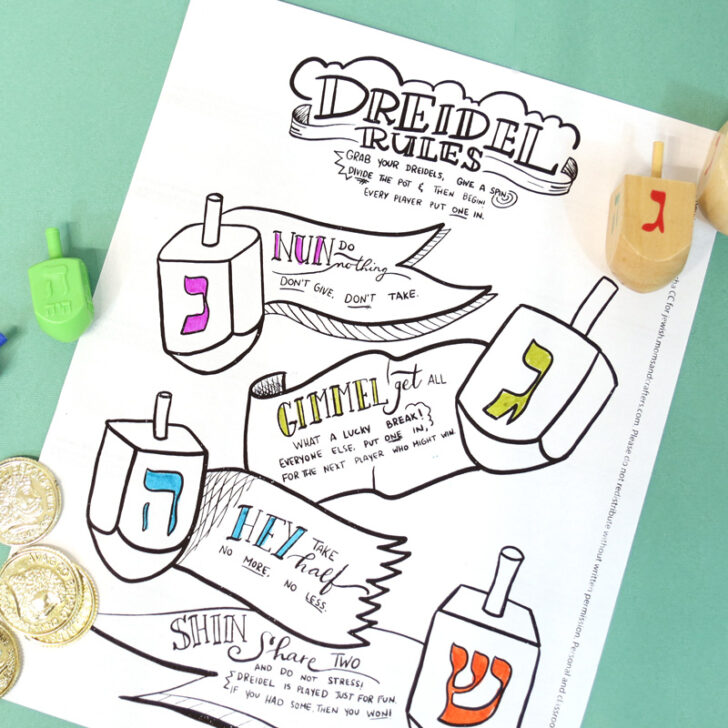 DREIDEL
RULES
GRAB YOUR DREIDELS, GIVE A SPIN
DIVIDE THE POT & THEN BEGIN
EVERY PLAYER PUT ONE IN.
NUN DO
nothing
DON'T GIVE, DON'T TAKE.
נ
GIMMEL get ALL
WHAT A LUCKY BREAK!
EVERYONE ELSE, PUT ONE IN,
FOR THE NEXT PLAYER WHO MIGHT WIN.
ג
ה
HEY TAKE
half
NO MORE, NO LESS.
SHIN Share TWO
AND DO NOT STRESS!
DREIDEL IS PLAYED JUST FOR FUN.
IF YOU HAD SOME, THEN YOU WON!
ש
CC for jewishmomsandcrafters.com. Please do not redistribute without written permission. Personal and
ג
ה